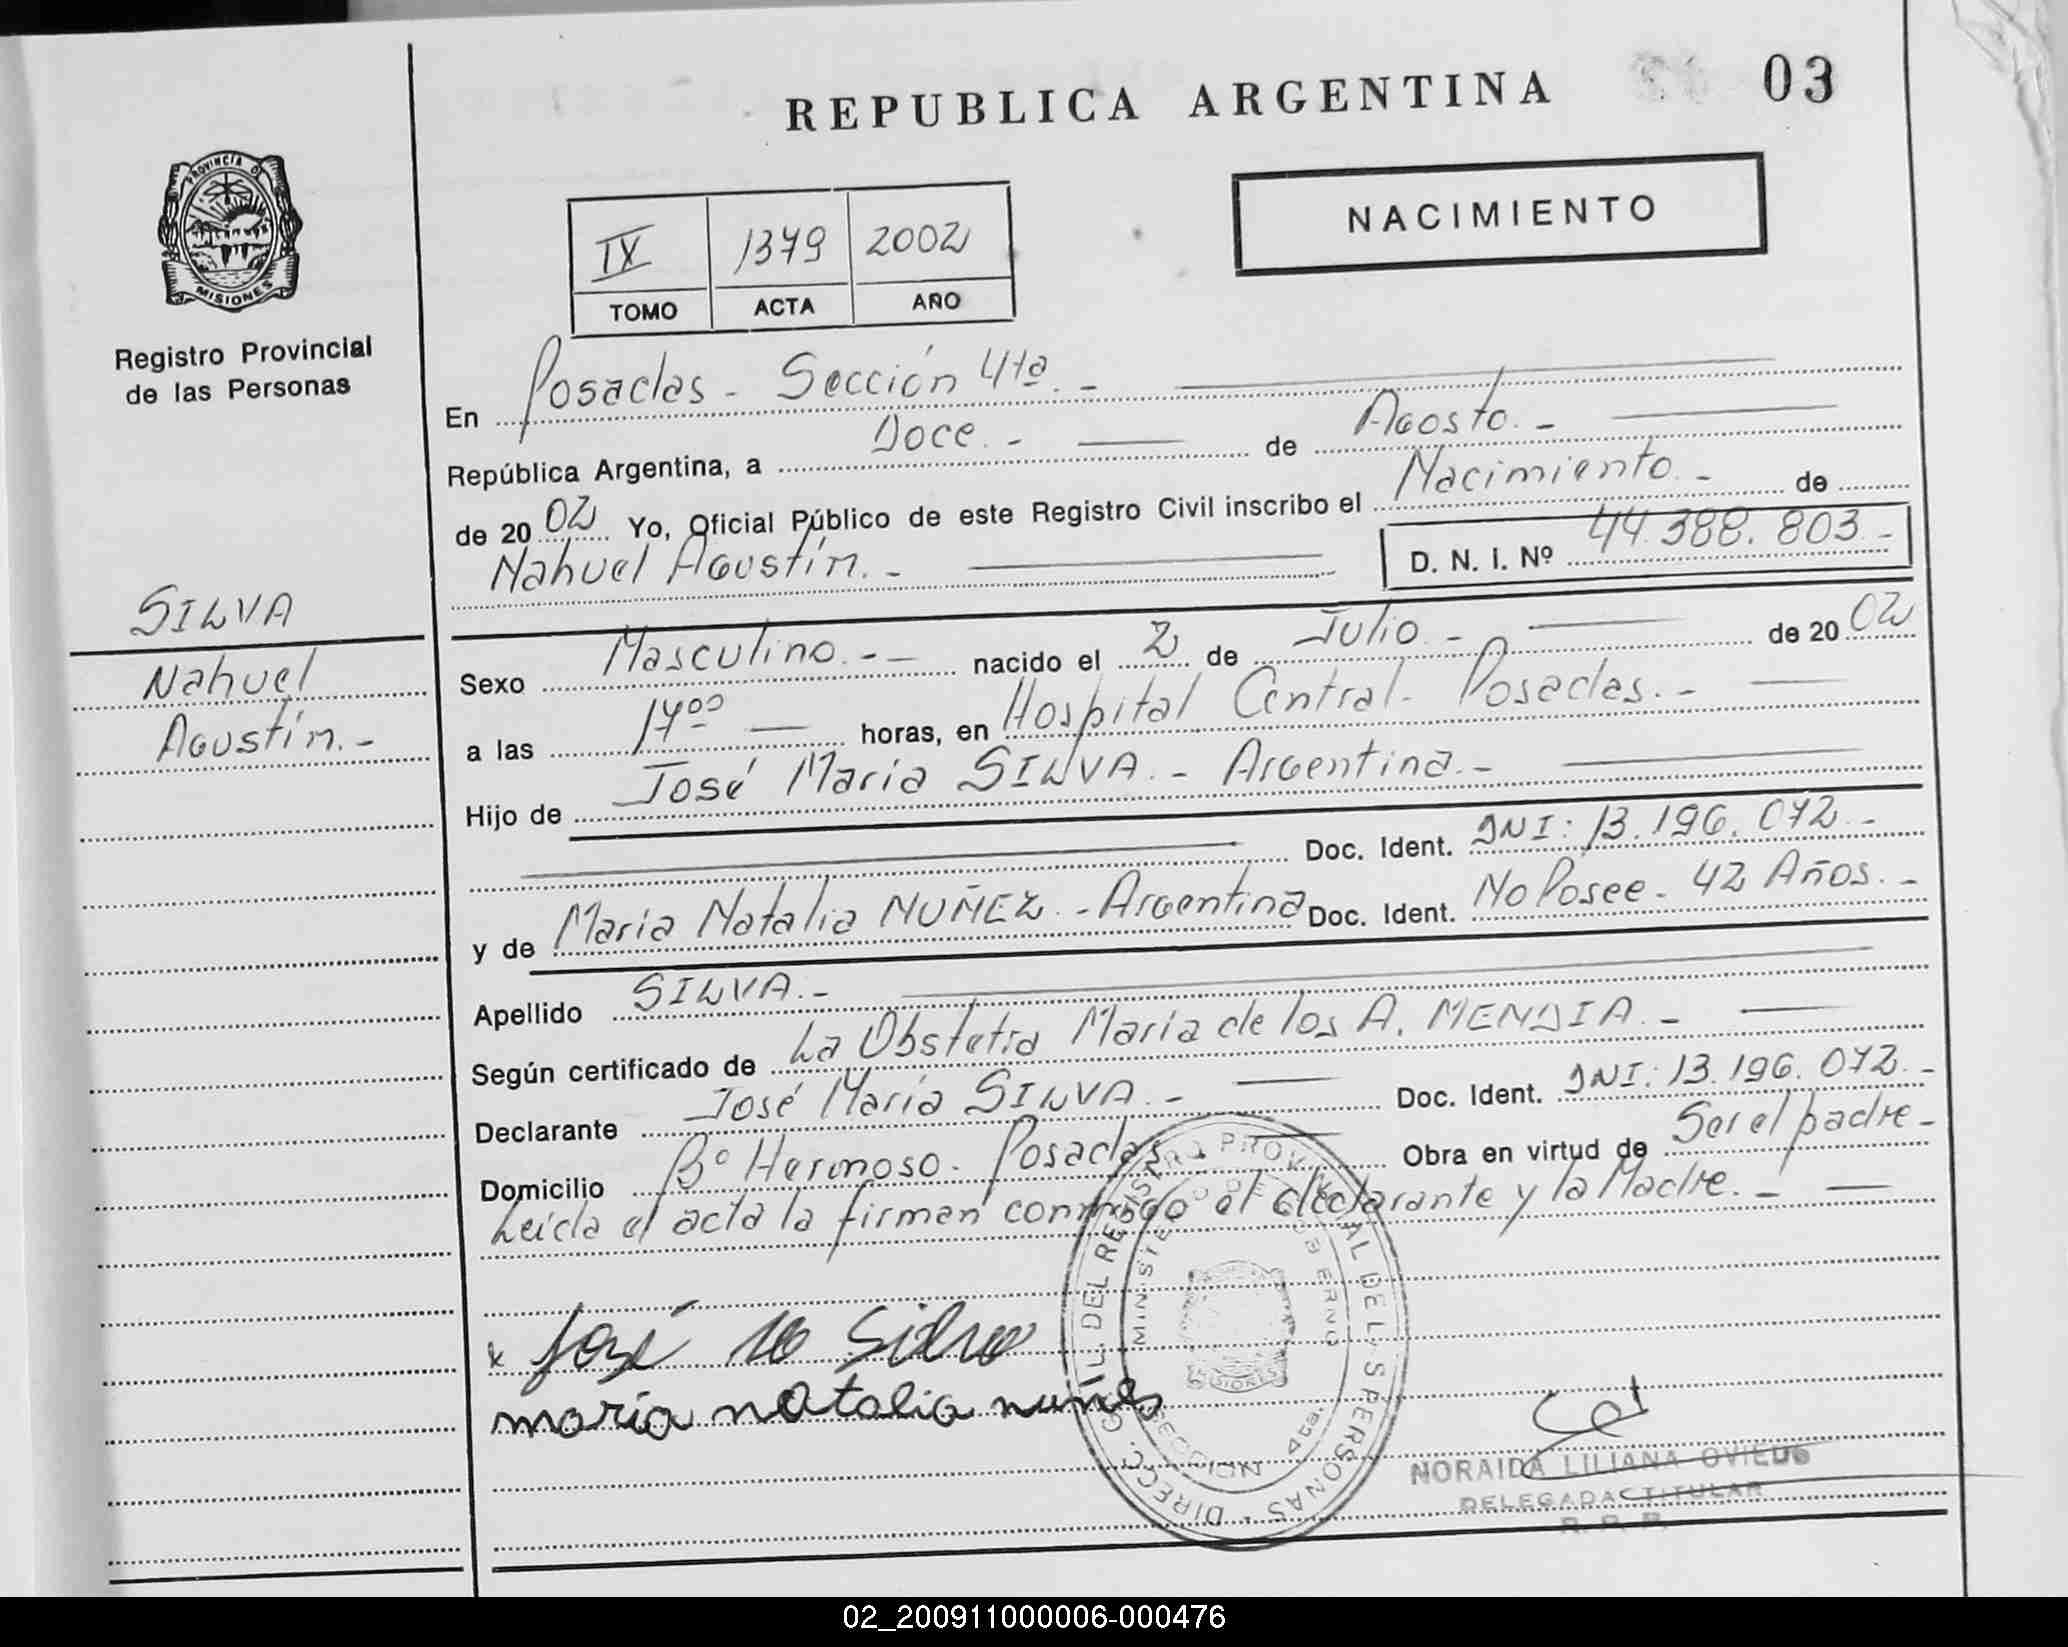 REPUBLICA ARGENTINA
03
PROVINCIA D
MISIONES
Registro Provincial
de las Personas
NACIMIENTO
IX 1379 2002
TOMO ACTA AÑO
En Posadas - Sección 4ta. -
República Argentina, a Doce. - de Agosto. -
de 20 02 Yo, Oficial Público de este Registro Civil inscribo el Nacimiento. - de
Nahuel Agustín. - D. N. I. Nº 44.388.803. -
SILVA
Nahuel
Agustín. -
Sexo Masculino. - - nacido el 2 de Julio. - de 20 02
a las 17 00 horas, en Hospital Central - Posadas. -
Hijo de José María SILVA. - Argentina. -
Doc. Ident. DNI: 13.196.072. -
y de María Natalia NUÑEZ. - Argentina Doc. Ident. No Posee - 42 Años. -
Apellido SILVA. -
Según certificado de La Obstetra María de los A. MENDIA. -
Declarante José María SILVA. - Doc. Ident. DNI: 13.196.072. -
Domicilio Bº Hermoso - Posadas Obra en virtud de Ser el padre -
Leída el acta la firman conmigo el declarante y la Madre. -
x José Silva
maria natalia nunes
DIRECC. GRAL. DEL REGISTRO PROVINCIAL DE LAS PERSONAS
MINISTERIO DE GOBIERNO
MISIONES
SECCION 4ta.
NORAIDA LILIANA OVIEDO
DELEGADA TITULAR
R. P. P.
02_200911000006-000476